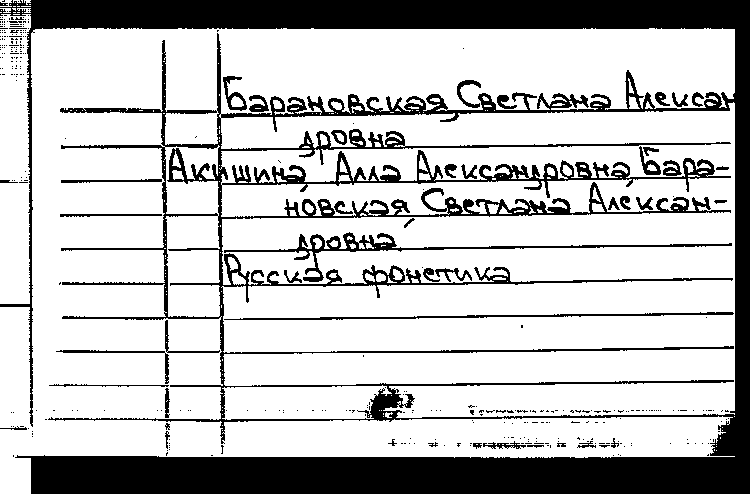 Барановская, Светлана Алексан
дровна
Акишина, Алла Александровна, Бара-
новская, Светлана Алексан-
дровна
Русская фонетика